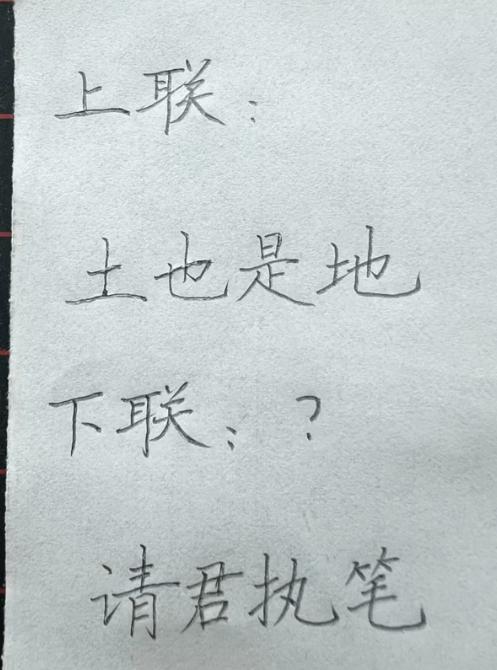 上联：
土也是地
下联：？
请君执笔